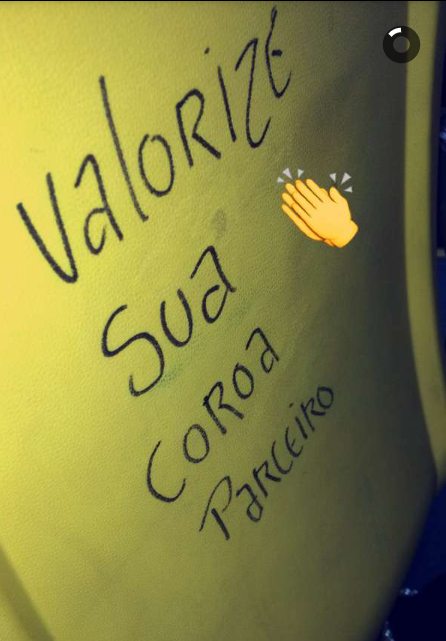 ValoRizE
Sua
coRoa
PaRcEiRo